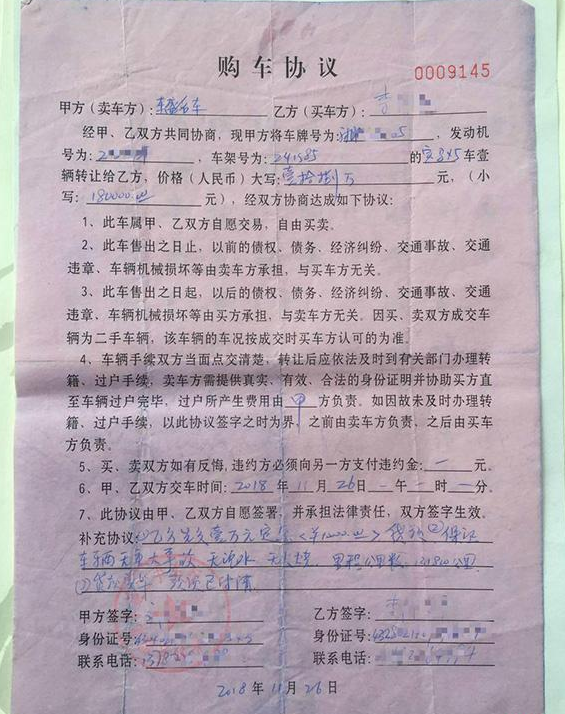 购车协议
0009145
甲方（卖车方）: 车 乙方（买车方）: 李
经甲、乙双方共同协商，现甲方将车牌号为: 05，发动机
号为: 2，车架号为: 241585的宝马X5车壹
辆转让给乙方，价格（人民币）大写: 壹拾捌万元，（小
写: 180000.00元），经双方协商达成如下协议:
1、此车属甲、乙双方自愿交易，自由买卖。
2、此车售出之日止，以前的债权、债务、经济纠纷、交通事故、交通
违章、车辆机械损坏等由卖车方承担，与买车方无关。
3、此车售出之日起，以后的债权、债务、经济纠纷、交通事故、交通
违章、车辆机械损坏等由买车方承担，与卖车方无关。因买、卖双方成交车
辆为二手车辆，该车辆的车况按成交时买车方认可的为准。
4、车辆手续双方当面点交清楚，转让后应依法及时到有关部门办理转
籍、过户手续，卖车方需提供真实、有效、合法的身份证明并协助买方直
至车辆过户完毕，过户所产生费用由甲方负责。如因故未及时办理转
籍、过户手续，以此协议签字之时为界，之前由卖车方负责，之后由买车
方负责。
5、买、卖双方如有反悔，违约方必须向另一方支付违约金: 一元。
6、甲、乙双方交车时间: 2018年11月26日一午一时一分。
7、此协议由甲、乙双方自愿签署，并承担法律责任，双方签字生效。
补充协议: ①乙方先交壹万元定金 ②保证
车辆无重大事故 无泡水 无火烧，里程公里数，131800公里
甲方签字: 乙方签字: 李
身份证号: 身份证号:
联系电话: 联系电话:
2018年11月26日